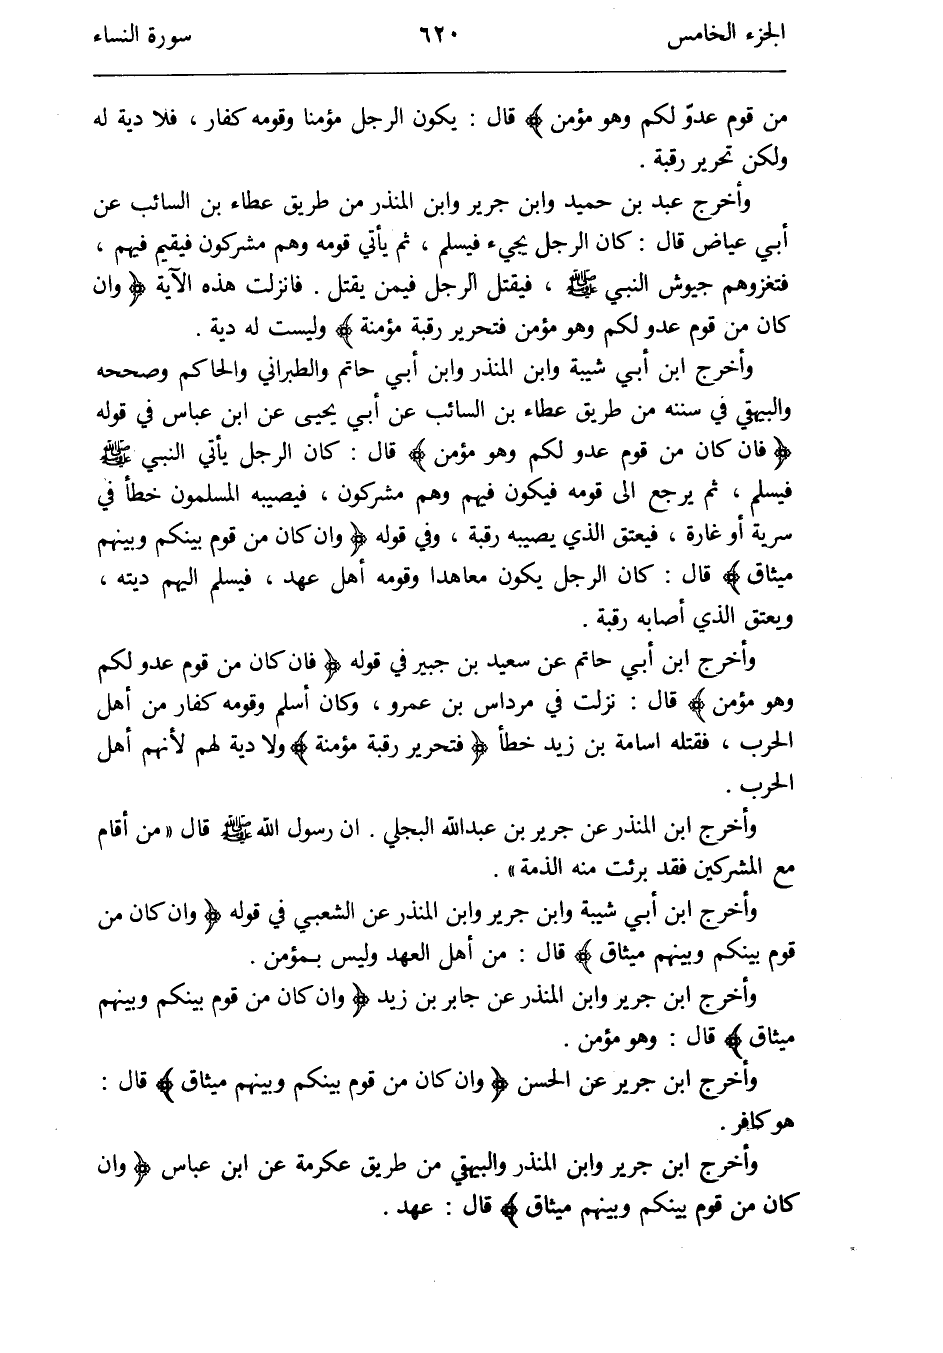 الجزء الخامس ٦٢٠ سورة النساء
من قوم عدوّ لكم وهو مؤمن ﴾ قال : يكون الرجل مؤمنا وقومه كفار ، فلا دية له
ولكن تحرير رقبة .
وأخرج عبد بن حميد وابن جرير وابن المنذر من طريق عطاء بن السائب عن
أبي عياض قال : كان الرجل يجيء فيسلم ، ثم يأتي قومه وهم مشركون فيقيم فيهم ،
فتغزوهم جيوش النبي ﷺ ، فيقتل الرجل فيمن يقتل . فانزلت هذه الآية ﴿ وان
كان من قوم عدو لكم وهو مؤمن فتحرير رقبة مؤمنة ﴾ وليست له دية .
وأخرج ابن أبي شيبة وابن المنذر وابن أبي حاتم والطبراني والحاكم وصححه
والبيهقي في سننه من طريق عطاء بن السائب عن أبي يحيى عن ابن عباس في قوله
﴿ فان كان من قوم عدو لكم وهو مؤمن ﴾ قال : كان الرجل يأتي النبي ﷺ
فيسلم ، ثم يرجع الى قومه فيكون فيهم وهم مشركون ، فيصيبه المسلمون خطأ في
سرية أو غارة ، فيعتق الذي يصيبه رقبة ، وفي قوله ﴿ وان كان من قوم بينكم وبينهم
ميثاق ﴾ قال : كان الرجل يكون معاهدا وقومه أهل عهد ، فيسلم اليهم ديته ،
ويعتق الذي أصابه رقبة .
وأخرج ابن أبي حاتم عن سعيد بن جبير في قوله ﴿ فان كان من قوم عدو لكم
وهو مؤمن ﴾ قال : نزلت في مرداس بن عمرو ، وكان أسلم وقومه كفار من أهل
الحرب ، فقتله اسامة بن زيد خطأ ﴿ فتحرير رقبة مؤمنة ﴾ ولا دية لهم لأنهم أهل
الحرب .
وأخرج ابن المنذر عن جرير بن عبدالله البجلي . ان رسول الله ﷺ قال « من أقام
مع المشركين فقد برئت منه الذمة » .
وأخرج ابن أبي شيبة وابن جرير وابن المنذر عن الشعبي في قوله ﴿ وان كان من
قوم بينكم وبينهم ميثاق ﴾ قال : من أهل العهد وليس بمؤمن .
وأخرج ابن جرير وابن المنذر عن جابر بن زيد ﴿ وان كان من قوم بينكم وبينهم
ميثاق ﴾ قال : وهو مؤمن .
وأخرج ابن جرير عن الحسن ﴿ وان كان من قوم بينكم وبينهم ميثاق ﴾ قال :
هو كافر .
وأخرج ابن جرير وابن المنذر والبيهقي من طريق عكرمة عن ابن عباس ﴿ وان
كان من قوم بينكم وبينهم ميثاق ﴾ قال : عهد .